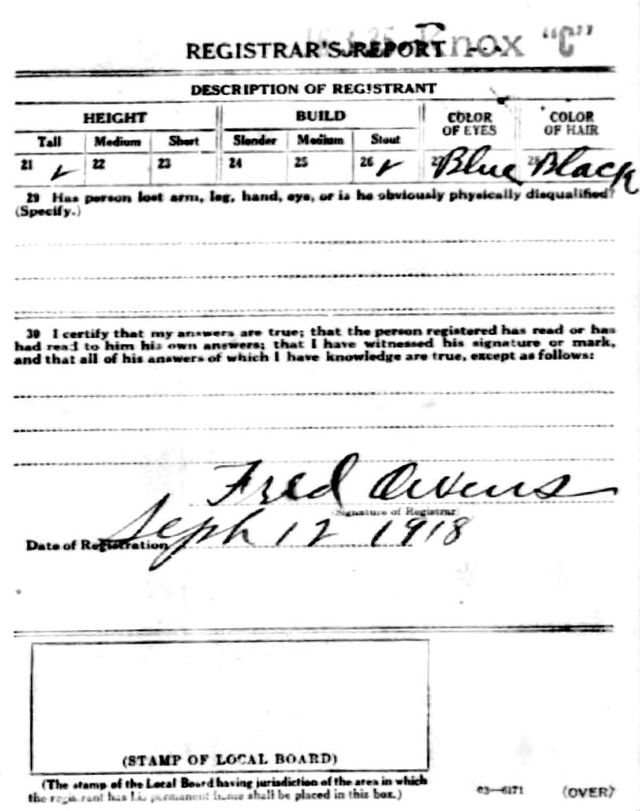 REGISTRAR'S REPORT Knox "C"
DESCRIPTION OF REGISTRANT
HEIGHT BUILD COLOR OF EYES COLOR OF HAIR
Tall Medium Short Slender Medium Stout
21 ✓ 22 23 24 25 26 ✓ 27 Blue 28 Black
29 Has person lost arm, leg, hand, eye, or is he obviously physically disqualified?
(Specify.)
30 I certify that my answers are true; that the person registered has read or has
had read to him his own answers; that I have witnessed his signature or mark,
and that all of his answers of which I have knowledge are true, except as follows:
Fred Owens
(Signature of Registrar)
Date of Registration Seph 12 1918
(STAMP OF LOCAL BOARD)
(The stamp of the Local Board having jurisdiction of the area in which
the registrant has his permanent home shall be placed in this box.)
03—6171 (OVER)